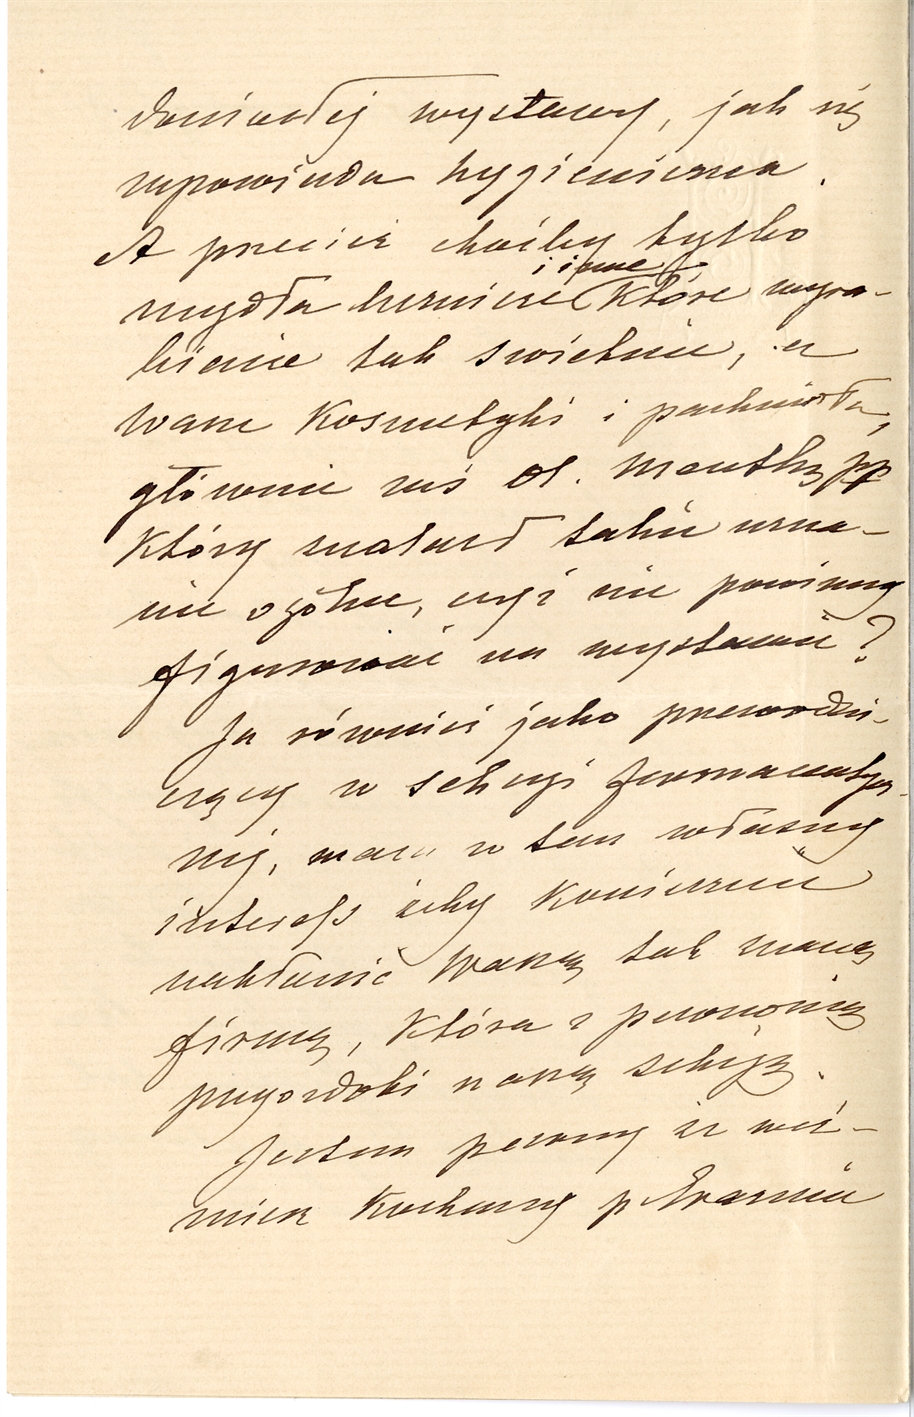 doniosłej wystawy, jak się
zapowiada hygieniczna.
A przecież choćby tylko
mydła lecznicze i inne które wyra-
biacie tak świetnie, a
Wasze Kosmetyki i pachnidła,
głównie zaś Ol. Menthę pp
Który znalazł takie uzna-
nie ogólne, czyż nie powinny
figurować na wystawie?
Ja również jako przewodni-
czący w sekcyi farmaceutycz-
nej, mam w tem własny
interess żeby Koniecznie
nakłonić Waszą tak znaną
firmę, Która z pewnością
przyozdobi naszą sekcję.
Jestem pewny że weź-
miesz Kochany p Erazmie